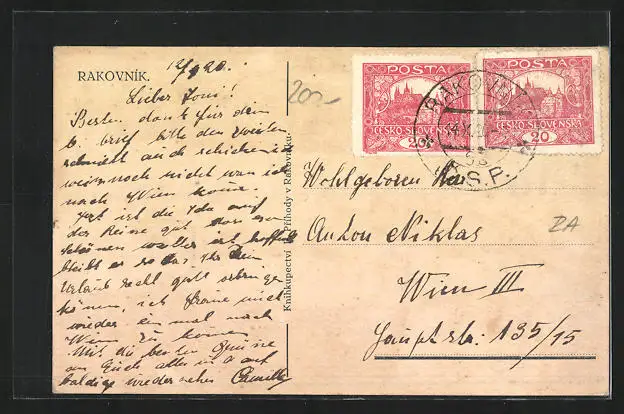 RAKOVNÍK.
12/9 20.
Lieber Toni!
Besten dank für dein
l. brief bitte den zweiten
schnitt auch schicken ich
weiss noch nicht wan ich
nach Wien kome.
ist die Ida auf
der Reise gut
schönen
bleibt er so das Ihr den
Urlaub recht gut
könen, ich freue mich
wieder ein mal nach
Wien zu komen
Mit die besten Grüsse
an Euch alle u a auf
baldige wiedersehen Camilla
Knihkupectví Příhody v Rakovníku
200-
POSTA
ČESKO-SLOVENSKÁ
20
POSTA
ČESKO-SLOVENSKÁ
20
RAKOVNÍK
Č.S.P.
Wohlgeboren
Anton Niklas
Wien III
Hauptstr: 135/15
ZA